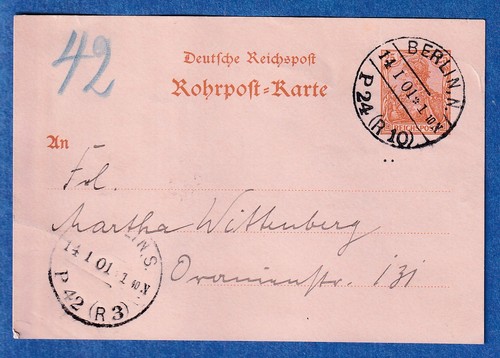 42
Deutsche Reichspost
Rohrpost-Karte
BERLIN, N.
14 1 01 1 10 N
P 24 (R 10)
REICHSPOST
An
Frl.
Martha Wittenberg
Oranienstr. 131
LIN S.
14 1 01 1 40 N
P 42 (R 3)